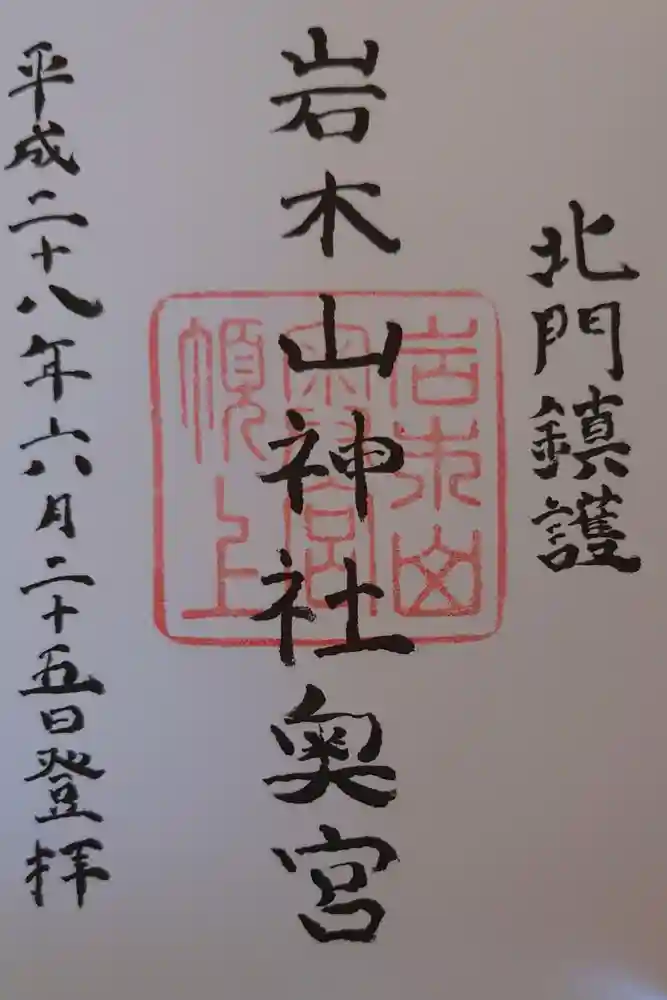 北門鎮護
岩木山神社奥宮
岩木山
頂上
平成二十八年六月二十五日登拝